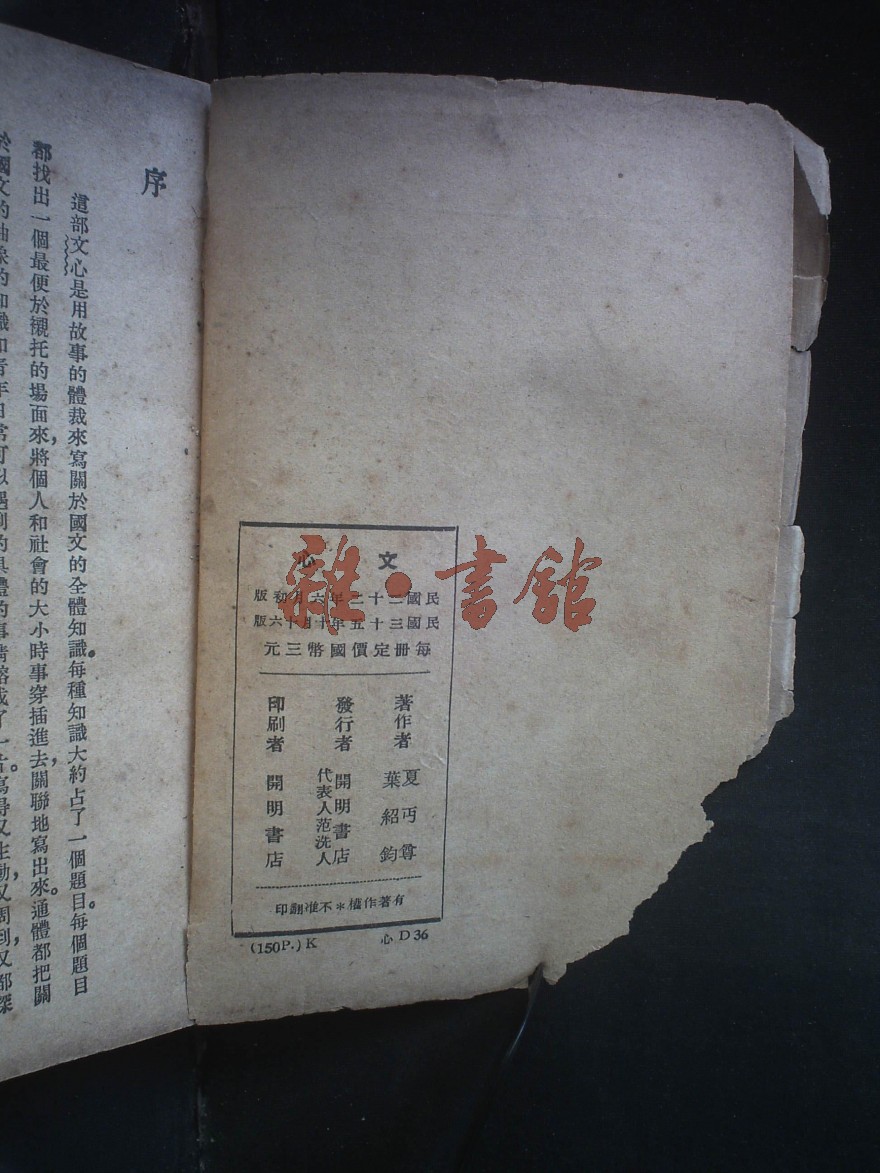 文心
民國二十三年六月初版
民國三十五年十月十六版
每冊定價國幣三元
著作者 夏丏尊
葉紹鈞
發行者 開明書店
代表人范洗人
印刷者 開明書店
有著作權＊不准翻印
(150P.) K 心 D 36
雜·書館
序
這部文心是用故事的體裁來寫關於國文的全體知識。每種知識大約占了一個題目。每個題目
都找出一個最便於襯托的場面來，將個人和社會的大小時事穿插進去，關聯地寫出來。通體都把關
於國文的抽象的知識和青年日常可以遇到的具體的事情溶成了一片。寫得又生動，又周到，又都深